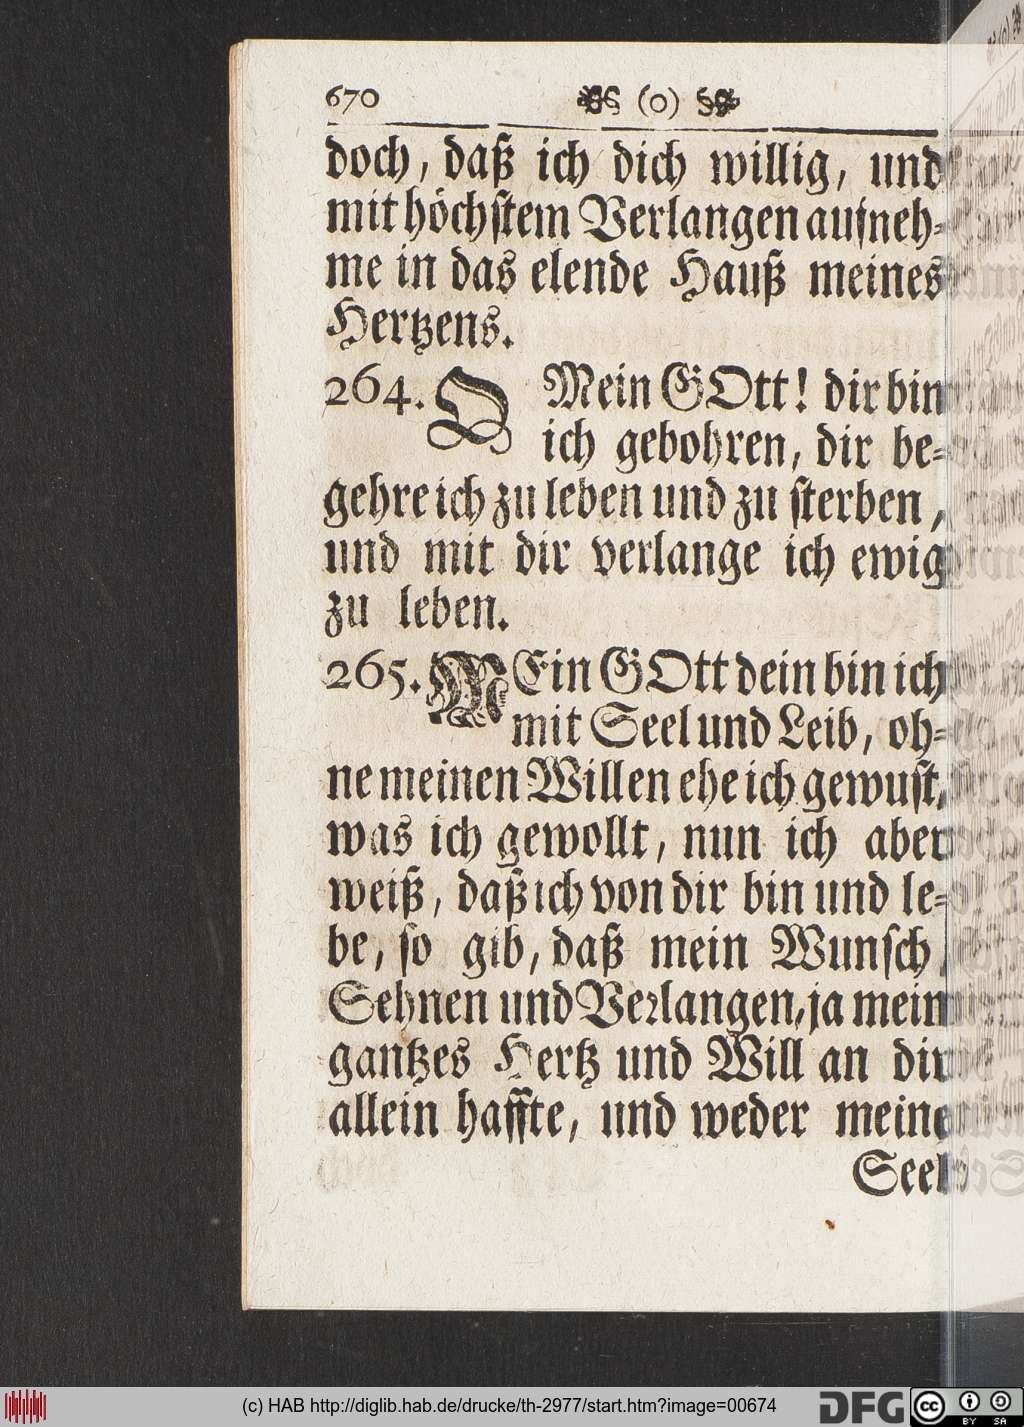 670 (0)
doch, daß ich dich willig, und
mit höchstem Verlangen aufneh-
me in das elende Hauß meines
Hertzens.
264. O Mein GOtt! dir bin
ich gebohren, dir be-
gehre ich zu leben und zu sterben,
und mit dir verlange ich ewig
zu leben.
265. MEin GOtt dein bin ich
mit Seel und Leib, oh-
ne meinen Willen ehe ich gewust,
was ich gewollt, nun ich aber
weiß, daß ich von dir bin und le-
be, so gib, daß mein Wunsch,
Sehnen und Verlangen, ja mein
gantzes Hertz und Will an dir
allein haffte, und weder meine
Seel
(c) HAB http://diglib.hab.de/drucke/th-2977/start.htm?image=00674
DFG
cc BY SA